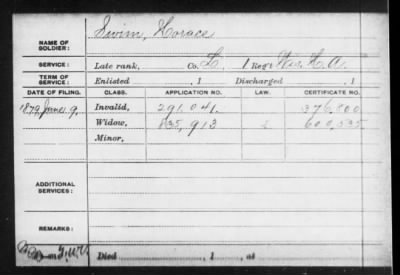 NAME OF SOLDIER: Swim, Horace
SERVICE: Late rank, Co. L, 1 Reg't Wis. H. A.
TERM OF SERVICE: Enlisted , 1 Discharged , 1
DATE OF FILING. CLASS. APPLICATION NO. LAW. CERTIFICATE NO.
1879, June 9. Invalid, 291.041. 376.800
Widow, 835,913 600,535
Minor,
ADDITIONAL SERVICES:
REMARKS:
Died , 1 , at